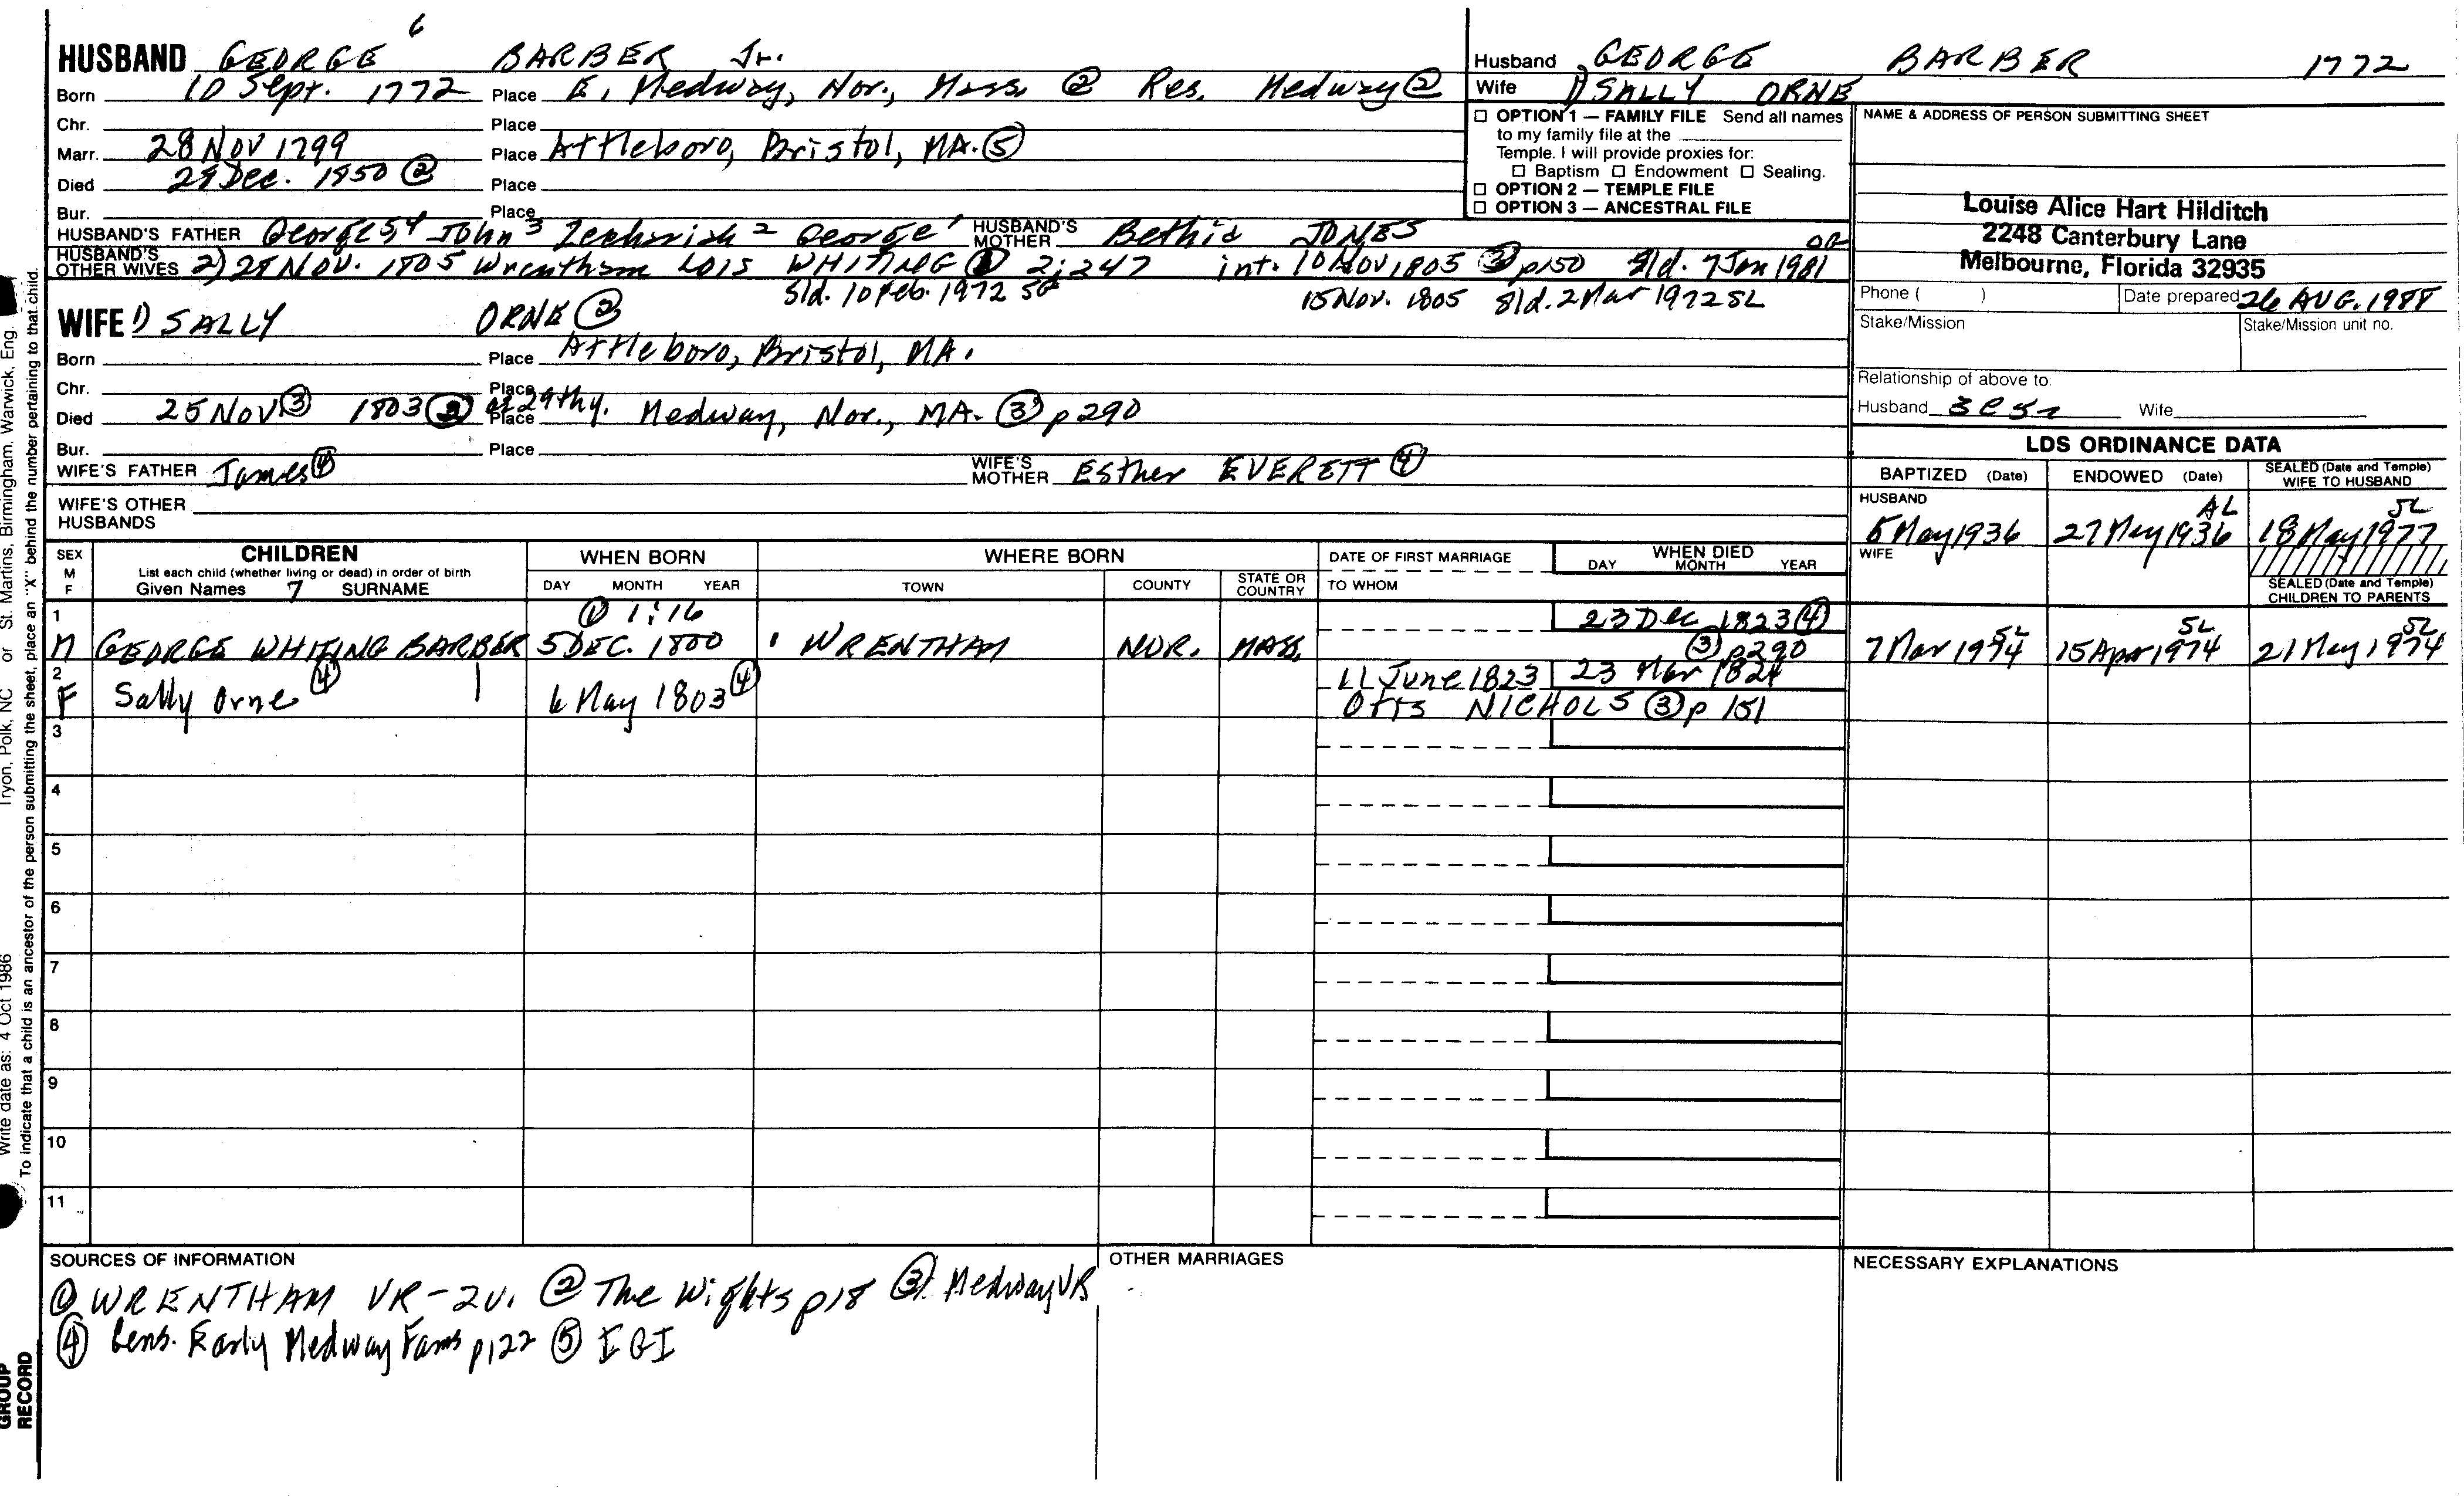 6
HUSBAND GEORGE BARBER Jr.
Born 10 Sept. 1772 Place E. Medway, Nor., Mass. ② Res. Medway ②
Chr. Place
Marr. 28 NOV 1799 Place Attleboro, Bristol, MA. ⑤
Died 29 Dec. 1950 ② Place
Bur. Place
HUSBAND'S FATHER George 5 4 John 3 Zechariah 2 George 1 HUSBAND'S MOTHER Bethia JONES
HUSBAND'S OTHER WIVES 2) 28 NOV. 1805 Wrentham LOIS WHITING ① 2:247 int. 10 NOV 1805 ③ p150 Sld. 7 Jan 1981 OA
Sld. 10 Feb. 1972 SG 15 Nov. 1805 Sld. 2 Mar 1972 SL
WIFE 1) SALLY ORNE ②
Born Place Attleboro, Bristol, MA.
Chr. Place
Died 25 Nov ③ 1803 ② Place at 29thy. Medway, Nor., MA. ③ p290
Bur. Place
WIFE'S FATHER James ④ WIFE'S MOTHER Esther EVERETT ④
WIFE'S OTHER HUSBANDS
Husband GEORGE BARBER 1772
Wife 1) SALLY ORNE
☐ OPTION 1 — FAMILY FILE Send all names
to my family file at the
Temple. I will provide proxies for:
☐ Baptism ☐ Endowment ☐ Sealing.
☐ OPTION 2 — TEMPLE FILE
☐ OPTION 3 — ANCESTRAL FILE
NAME & ADDRESS OF PERSON SUBMITTING SHEET
Louise Alice Hart Hilditch
2248 Canterbury Lane
Melbourne, Florida 32935
Phone ( ) Date prepared 26 AUG. 1988
Stake/Mission Stake/Mission unit no.
Relationship of above to:
Husband 3C5r Wife
LDS ORDINANCE DATA
BAPTIZED (Date) ENDOWED (Date) SEALED (Date and Temple) WIFE TO HUSBAND
HUSBAND AL SL
5 May 1936 27 May 1936 18 May 1977
WIFE
SEALED (Date and Temple) CHILDREN TO PARENTS
SEX M F
CHILDREN
List each child (whether living or dead) in order of birth
Given Names 7 SURNAME
WHEN BORN
DAY MONTH YEAR
WHERE BORN
TOWN COUNTY STATE OR COUNTRY
DATE OF FIRST MARRIAGE
TO WHOM
WHEN DIED
DAY MONTH YEAR
1 ① 1:16 23 Dec 1823 ④
M GEORGE WHITING BARBER 5 DEC. 1800 WRENTHAM NOR. MASS. ③ p290 7 Mar 1974 SL 15 Apr 1974 SL 21 May 1974 SL
2 11 June 1823 23 Mar 1824
F Sally Orne ④ 6 May 1803 ④ Otis NICHOLS ③ p 151
3
4
5
6
7
8
9
10
11
SOURCES OF INFORMATION
① WRENTHAM VR-2v. ② The Wights p18 ③ Medway VR
④ Gens. Early Medway Fams p122 ⑤ IGI
OTHER MARRIAGES
NECESSARY EXPLANATIONS
Tryon, Polk, NC or St. Martins, Birmingham, Warwick, Eng.
Write date as: 4 Oct 1986
To indicate that a child is an ancestor of the person submitting the sheet, place an "X" behind the number pertaining to that child.
GROUP RECORD